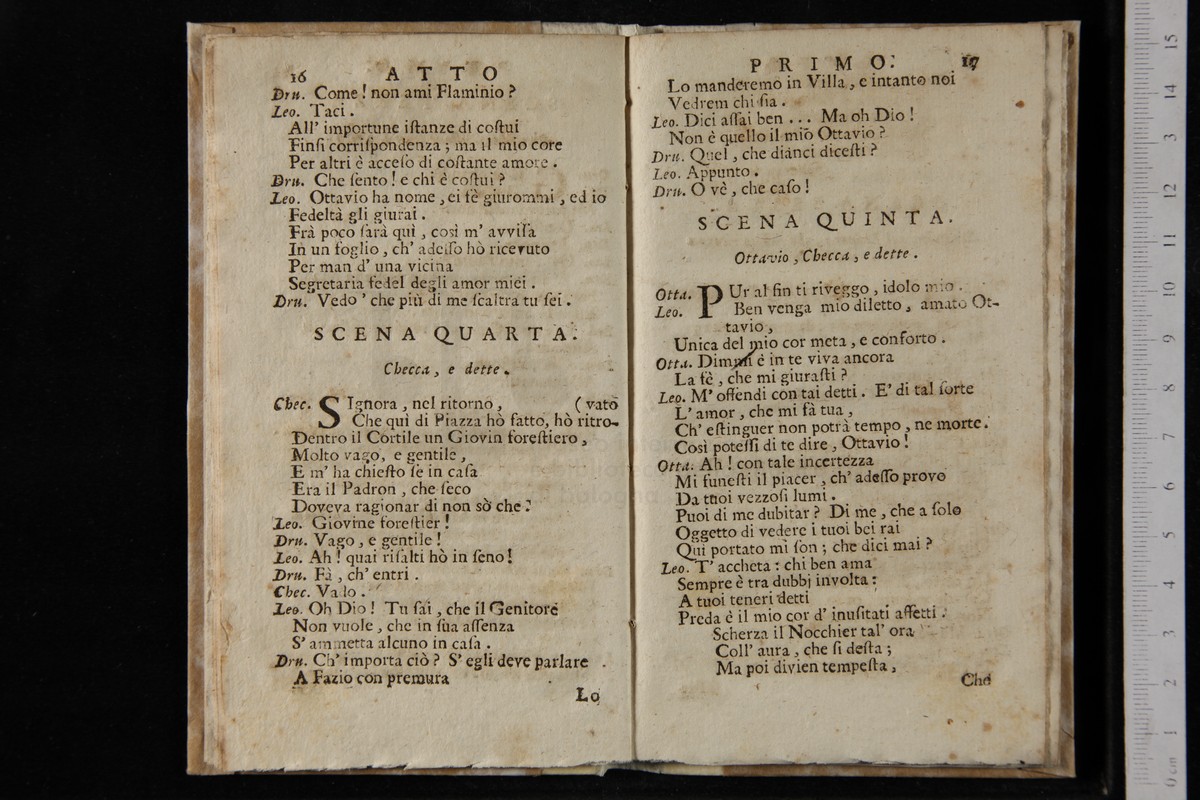 16 ATTO
Dru. Come! non ami Flaminio?
Leo. Taci.
All' importune iſtanze di coſtui
Finſi corriſpondenza; ma il mio core
Per altri è acceſo di coſtante amore.
Dru. Che ſento! e chi è coſtui?
Leo. Ottavio ha nome, ei fè giurommi, ed io
Fedeltà gli giurai.
Frà poco ſarà quì, così m' avviſa
In un foglio, ch' adeſſo hò ricevuto
Per man d' una vicina
Segretaria fedel degli amor miei.
Dru. Vedo ' che più di me ſcaltra tu ſei.
SCENA QUARTA.
Checca, e dette.
Chec. SIgnora, nel ritorno, (vato
Che quì di Piazza hò fatto, hò ritro-
Dentro il Cortile un Giovin foreſtiero,
Molto vago, e gentile,
E m' ha chieſto ſe in caſa
Era il Padron, che ſeco
Doveva ragionar di non sò che.
Leo. Giovine foreſtier!
Dru. Vago, e gentile!
Leo. Ah! quai riſalti hò in ſeno!
Dru. Fà, ch' entri.
Chec. Va lo.
Leo. Oh Dio! Tu ſai, che il Genitore
Non vuole, che in ſua aſſenza
S' ammetta alcuno in caſa.
Dru. Ch' importa ciò? S' egli deve parlare
A Fazio con premura
Lo
PRIMO. 17
Lo manderemo in Villa, e intanto noi
Vedrem chi ſia.
Leo. Dici aſſai ben ... Ma oh Dio!
Non è quello il mio Ottavio?
Dru. Quel, che dianci diceſti?
Leo. Appunto.
Dru. O vè, che caſo!
SCENA QUINTA.
Ottavio, Checca, e dette.
Otta. PUr al fin ti riveggo, idolo mio.
Leo. Ben venga mio diletto, amato Ot-
tavio,
Unica del mio cor meta, e conforto.
Otta. Dimmi è in te viva ancora
La fè, che mi giuraſti?
Leo. M' offendi con tai detti. E' di tal ſorte
L' amor, che mi fà tua,
Ch' eſtinguer non potrà tempo, ne morte.
Così poteſſi di te dire, Ottavio!
Otta. Ah! con tale incertezza
Mi funeſti il piacer, ch' adeſſo provo
Da tuoi vezzoſi lumi.
Puoi di me dubitar? Di me, che a ſolo
Oggetto di vedere i tuoi bei rai
Quì portato mi ſon; che dici mai?
Leo. T' accheta: chi ben ama
Sempre è tra dubbj involta:
A tuoi teneri detti
Preda è il mio cor d' inuſitati affetti.
Scherza il Nocchier tal' ora
Coll' aura, che ſi deſta;
Ma poi divien tempeſta,
Che